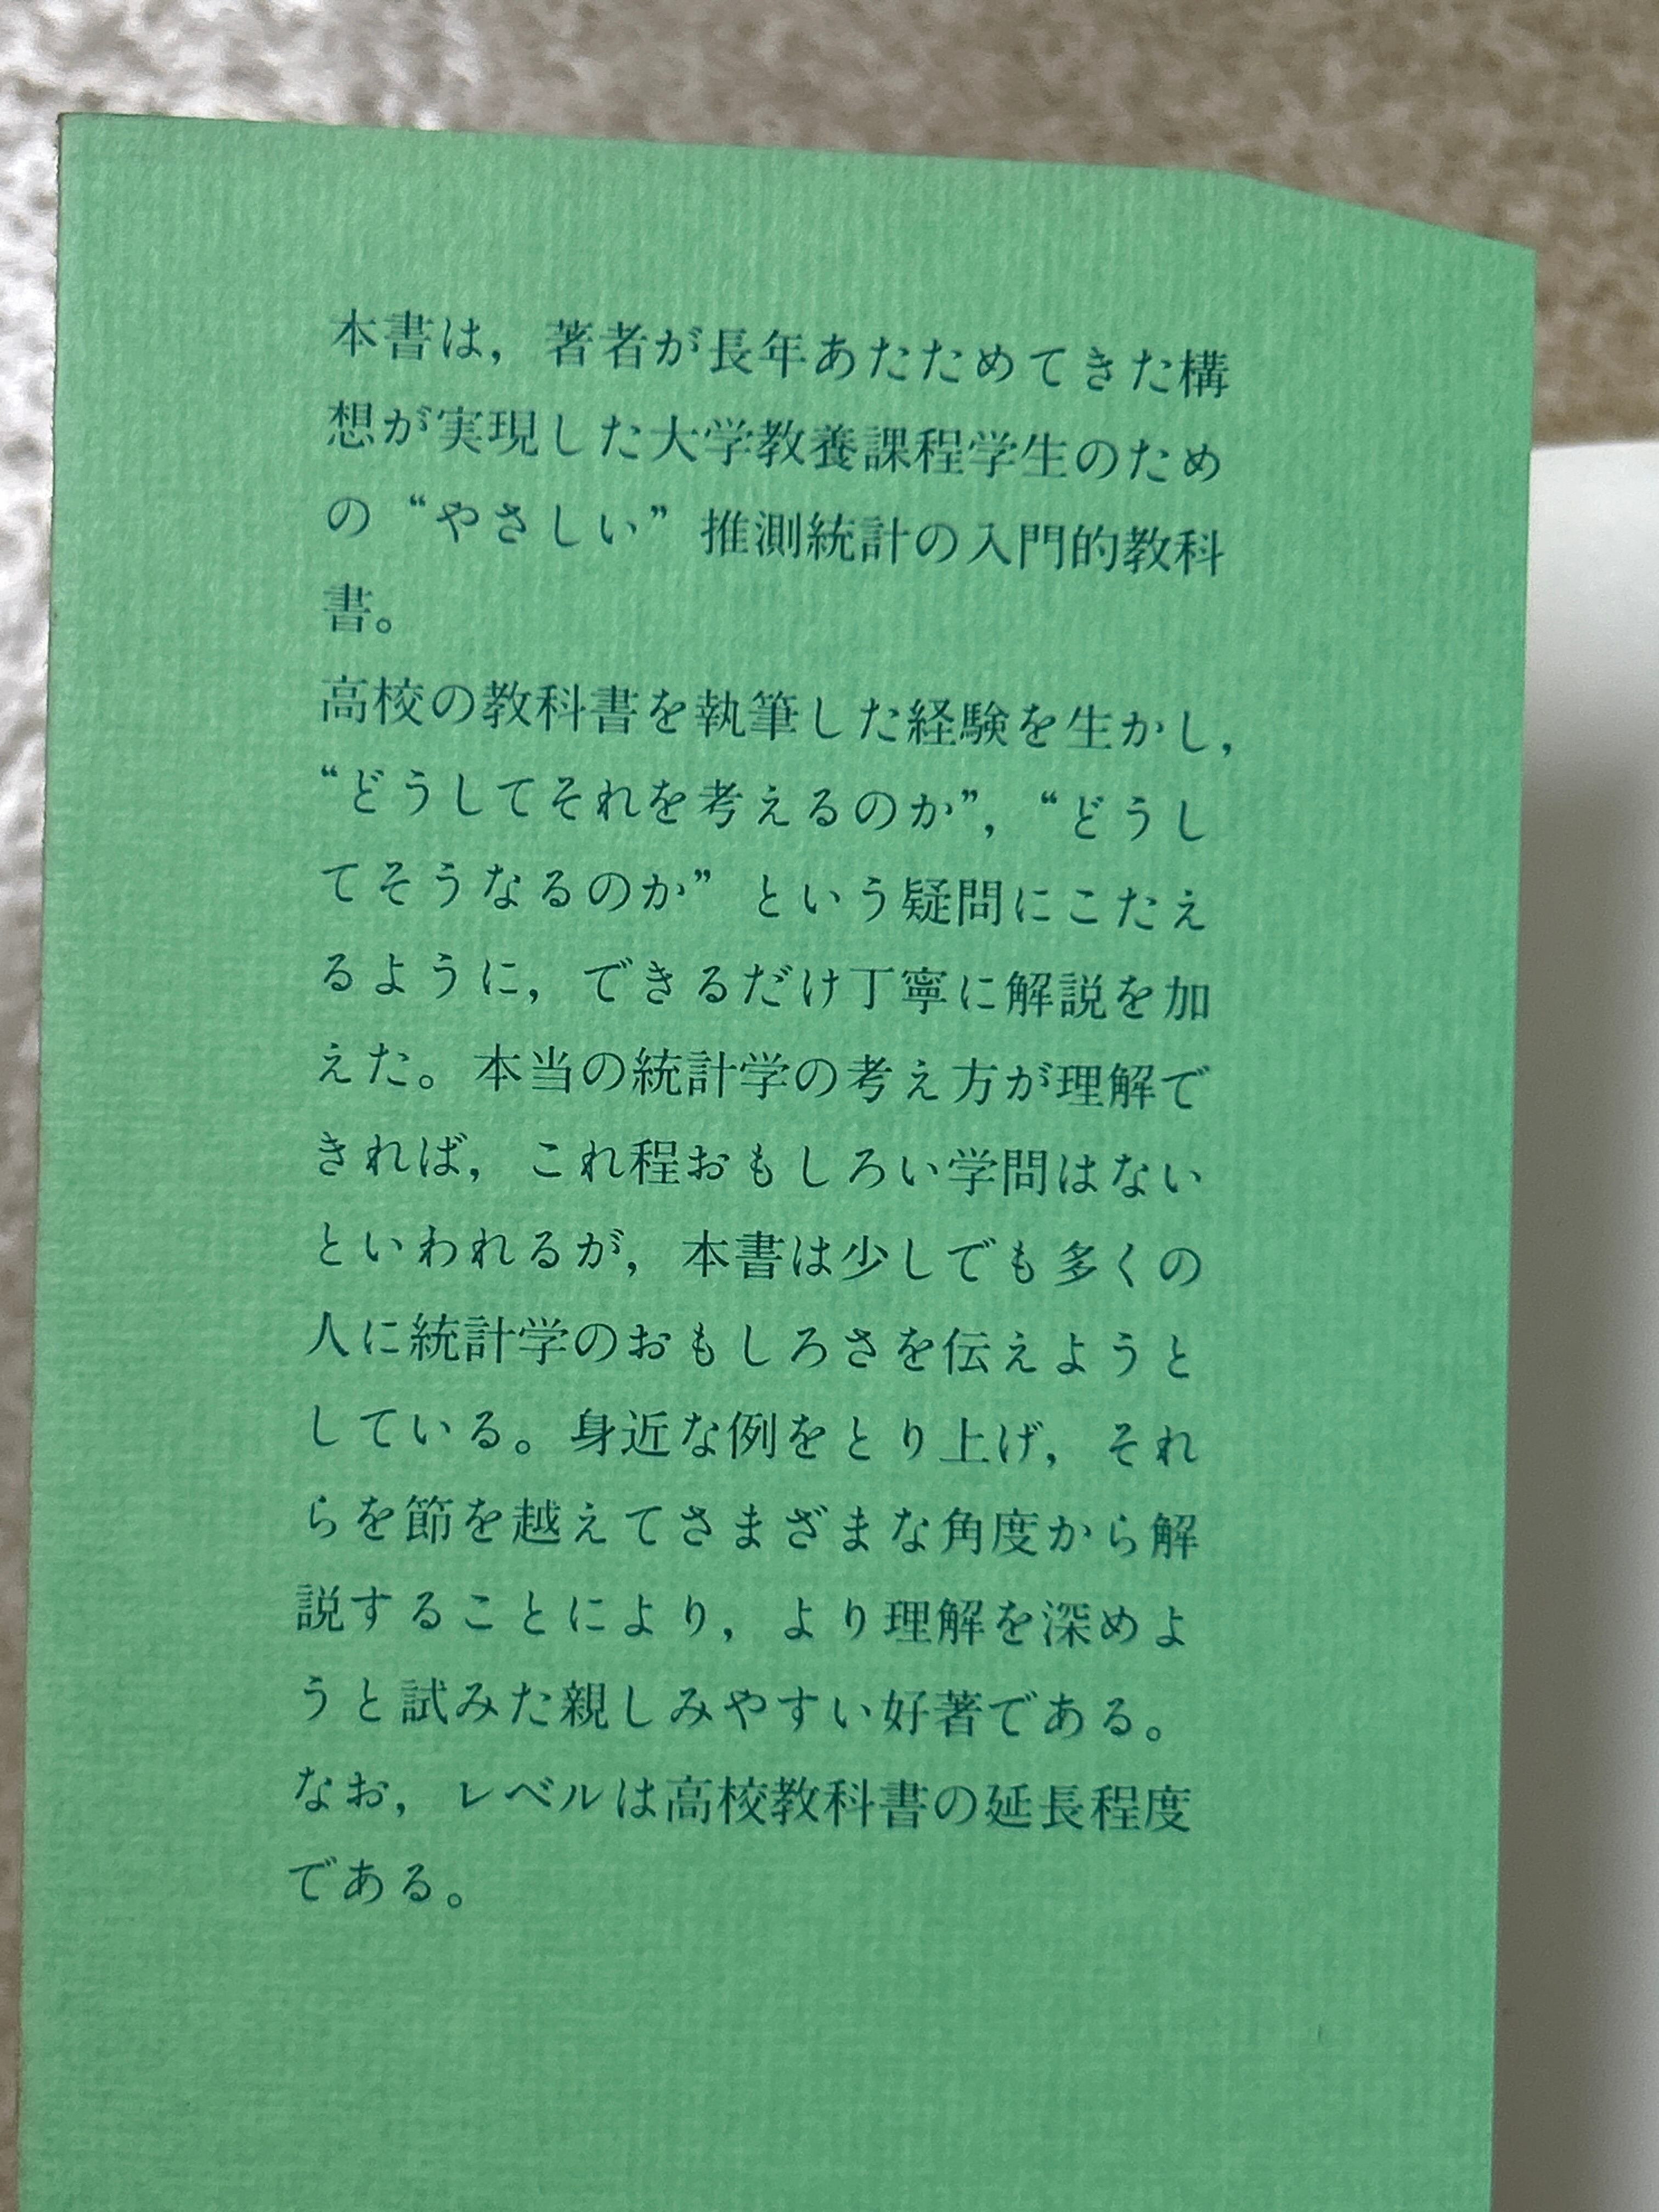 本書は，著者が長年あたためてきた構
想が実現した大学教養課程学生のため
の“やさしい”推測統計の入門的教科
書。
高校の教科書を執筆した経験を生かし，
“どうしてそれを考えるのか”，“どうし
てそうなるのか”という疑問にこたえ
るように，できるだけ丁寧に解説を加
えた。本当の統計学の考え方が理解で
きれば，これ程おもしろい学問はない
といわれるが，本書は少しでも多くの
人に統計学のおもしろさを伝えようと
している。身近な例をとり上げ，それ
らを節を越えてさまざまな角度から解
説することにより，より理解を深めよ
うと試みた親しみやすい好著である。
なお，レベルは高校教科書の延長程度
である。